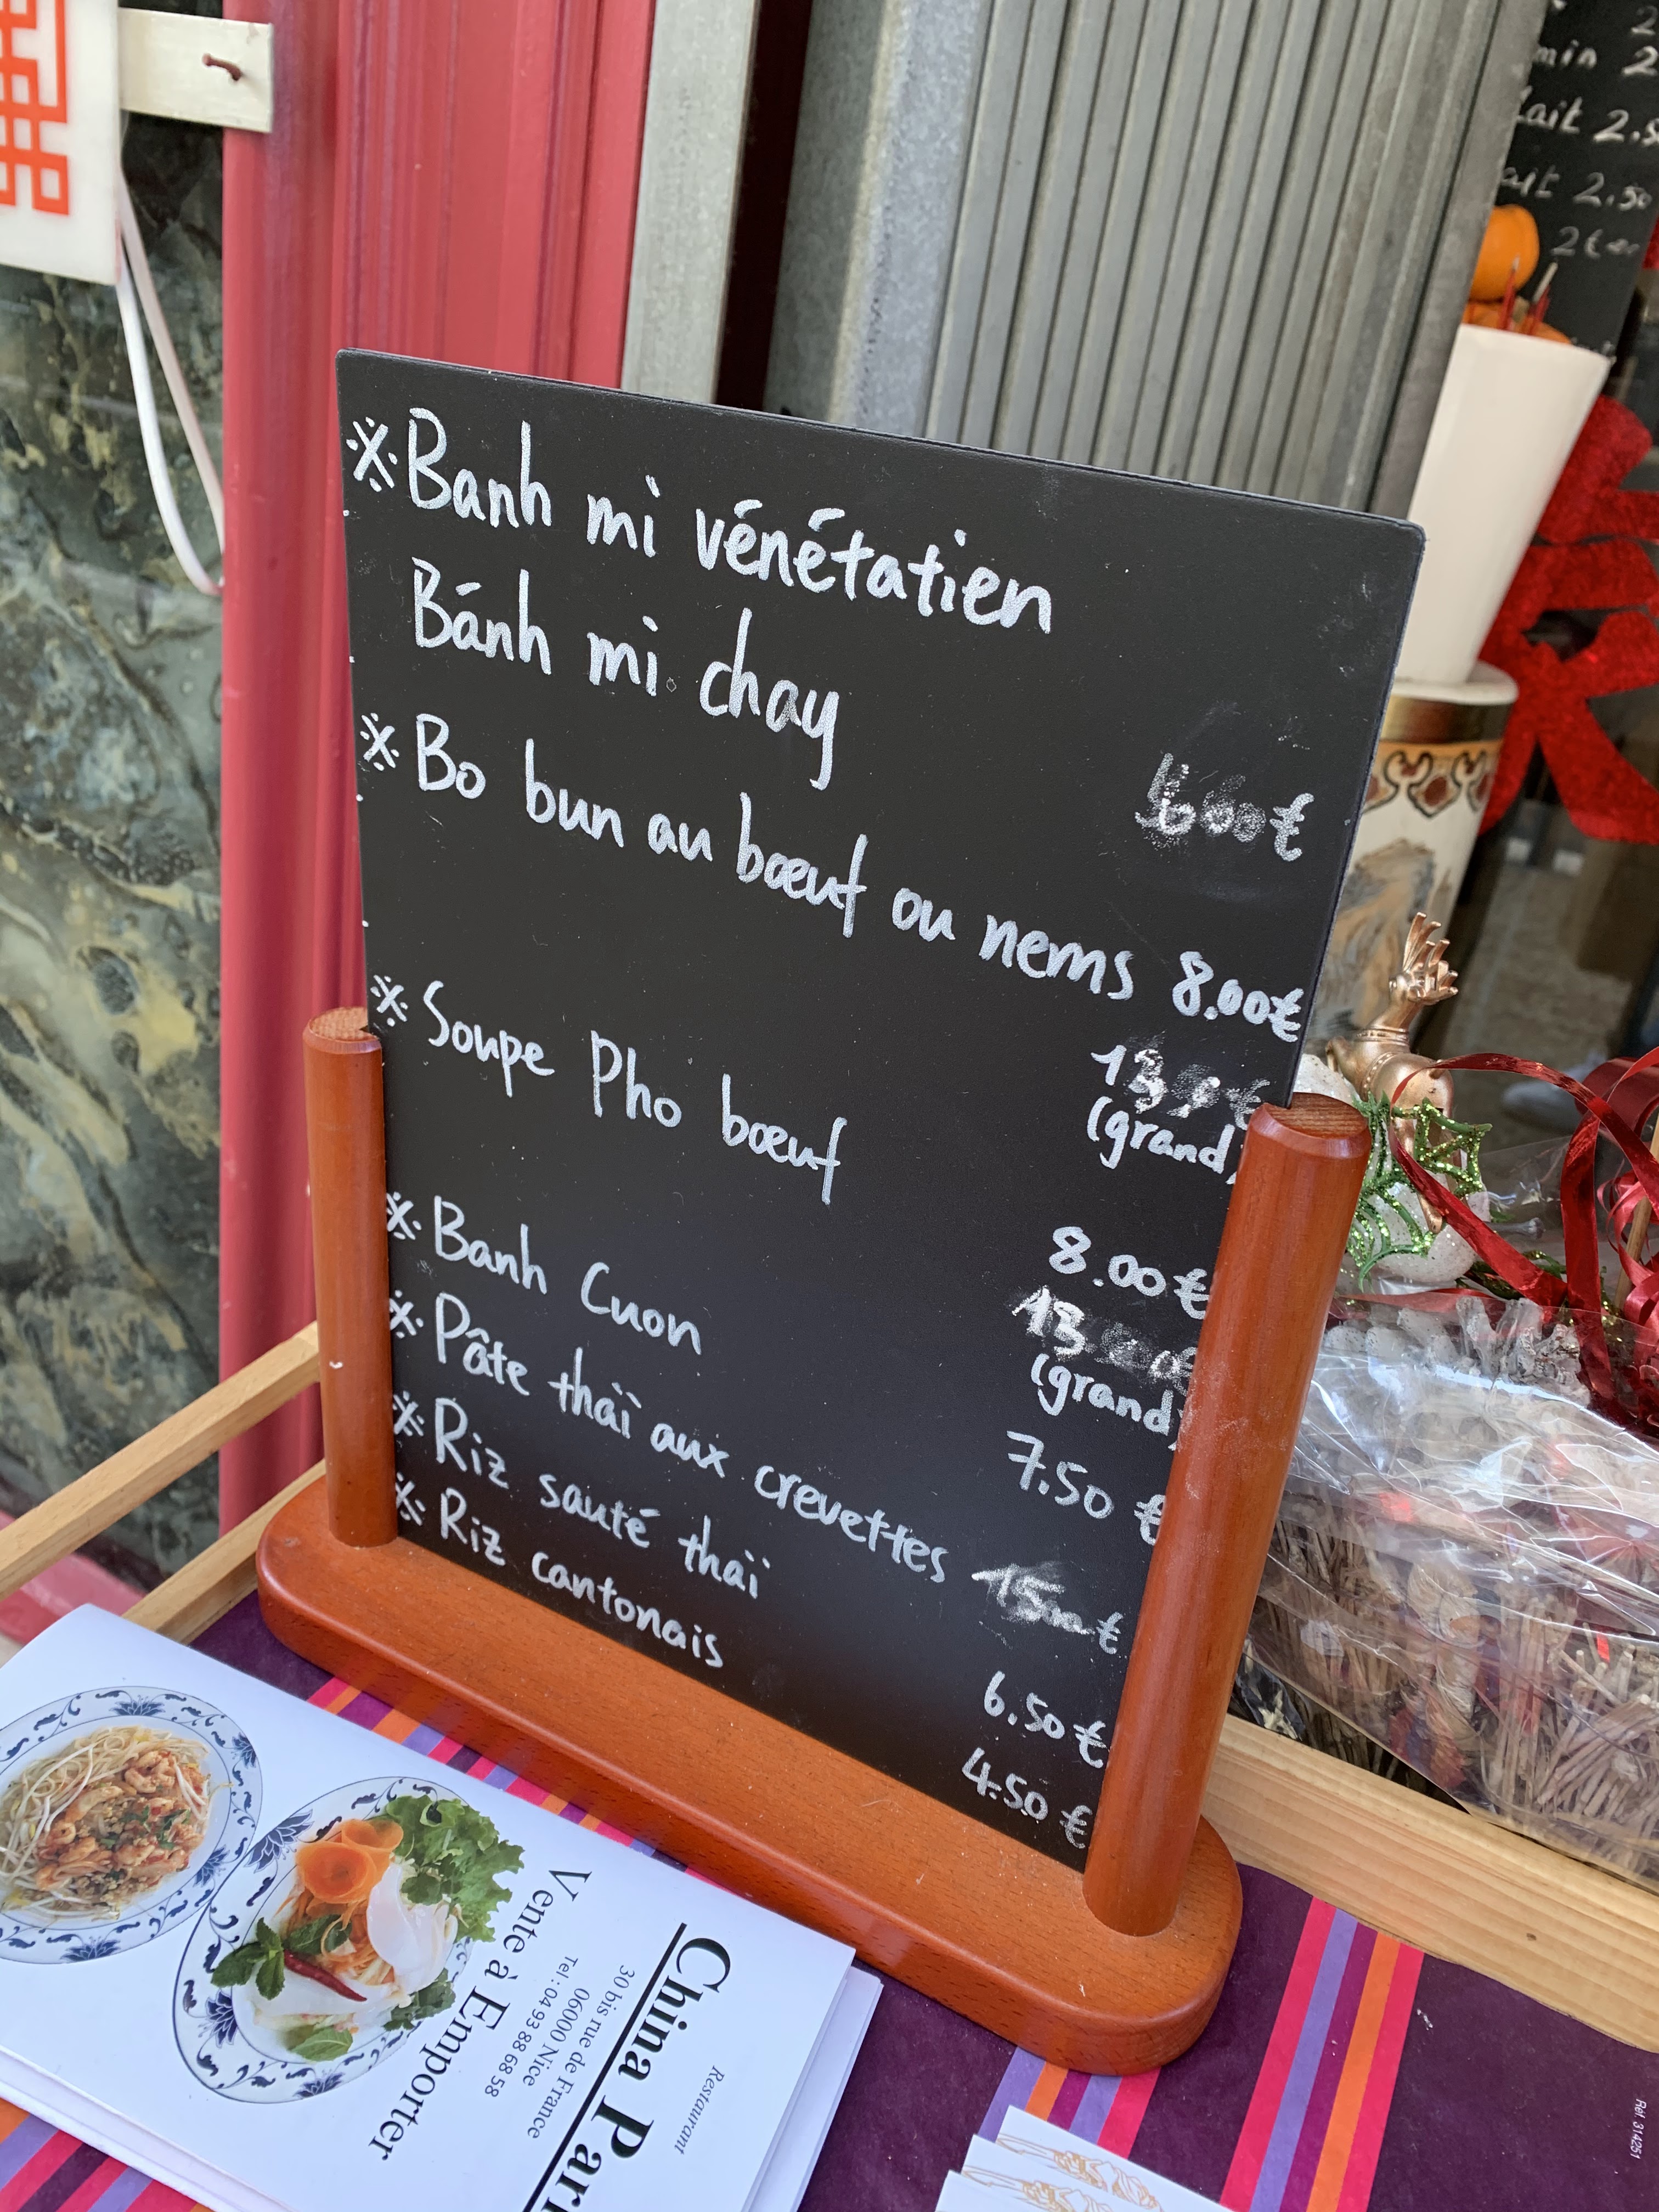 ※ Banh mi vénétatien
Bánh mi chay
€
※ Bo bun au bœuf ou nems 8.00€
13
(grand)
※ Soupe Pho bœuf
8.00€
13
(grand)
※ Banh Cuon
7.50 €
※ Pâte thaï aux crevettes 15.00 €
※ Riz sauté thaï
6.50 €
※ Riz cantonais
4.50 €
Restaurant
China Par
30 bis rue de France
06000 Nice
Tel : 04 93 88 68 58
Vente à Emporter
2
min 2
lait 2.5
ait 2.50
2
Réf. 314251